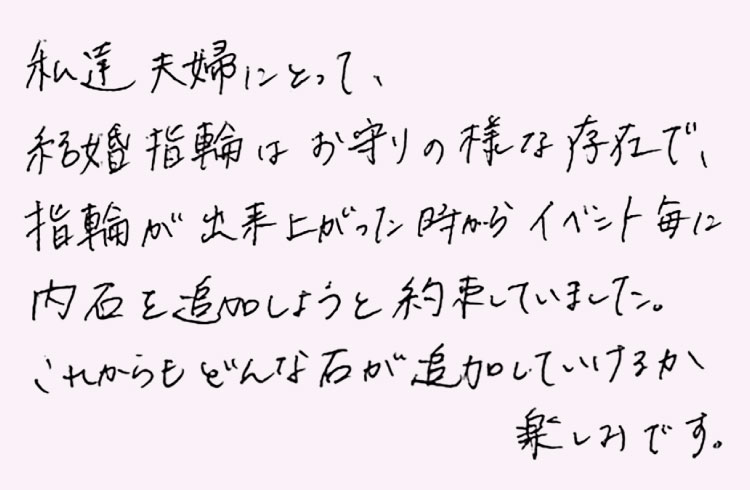 私達夫婦にとって、
結婚指輪はお守りの様な存在で、
指輪が出来上がった時からイベント毎に
内石を追加しようと約束していました。
これからもどんな石が追加していけるか
楽しみです。